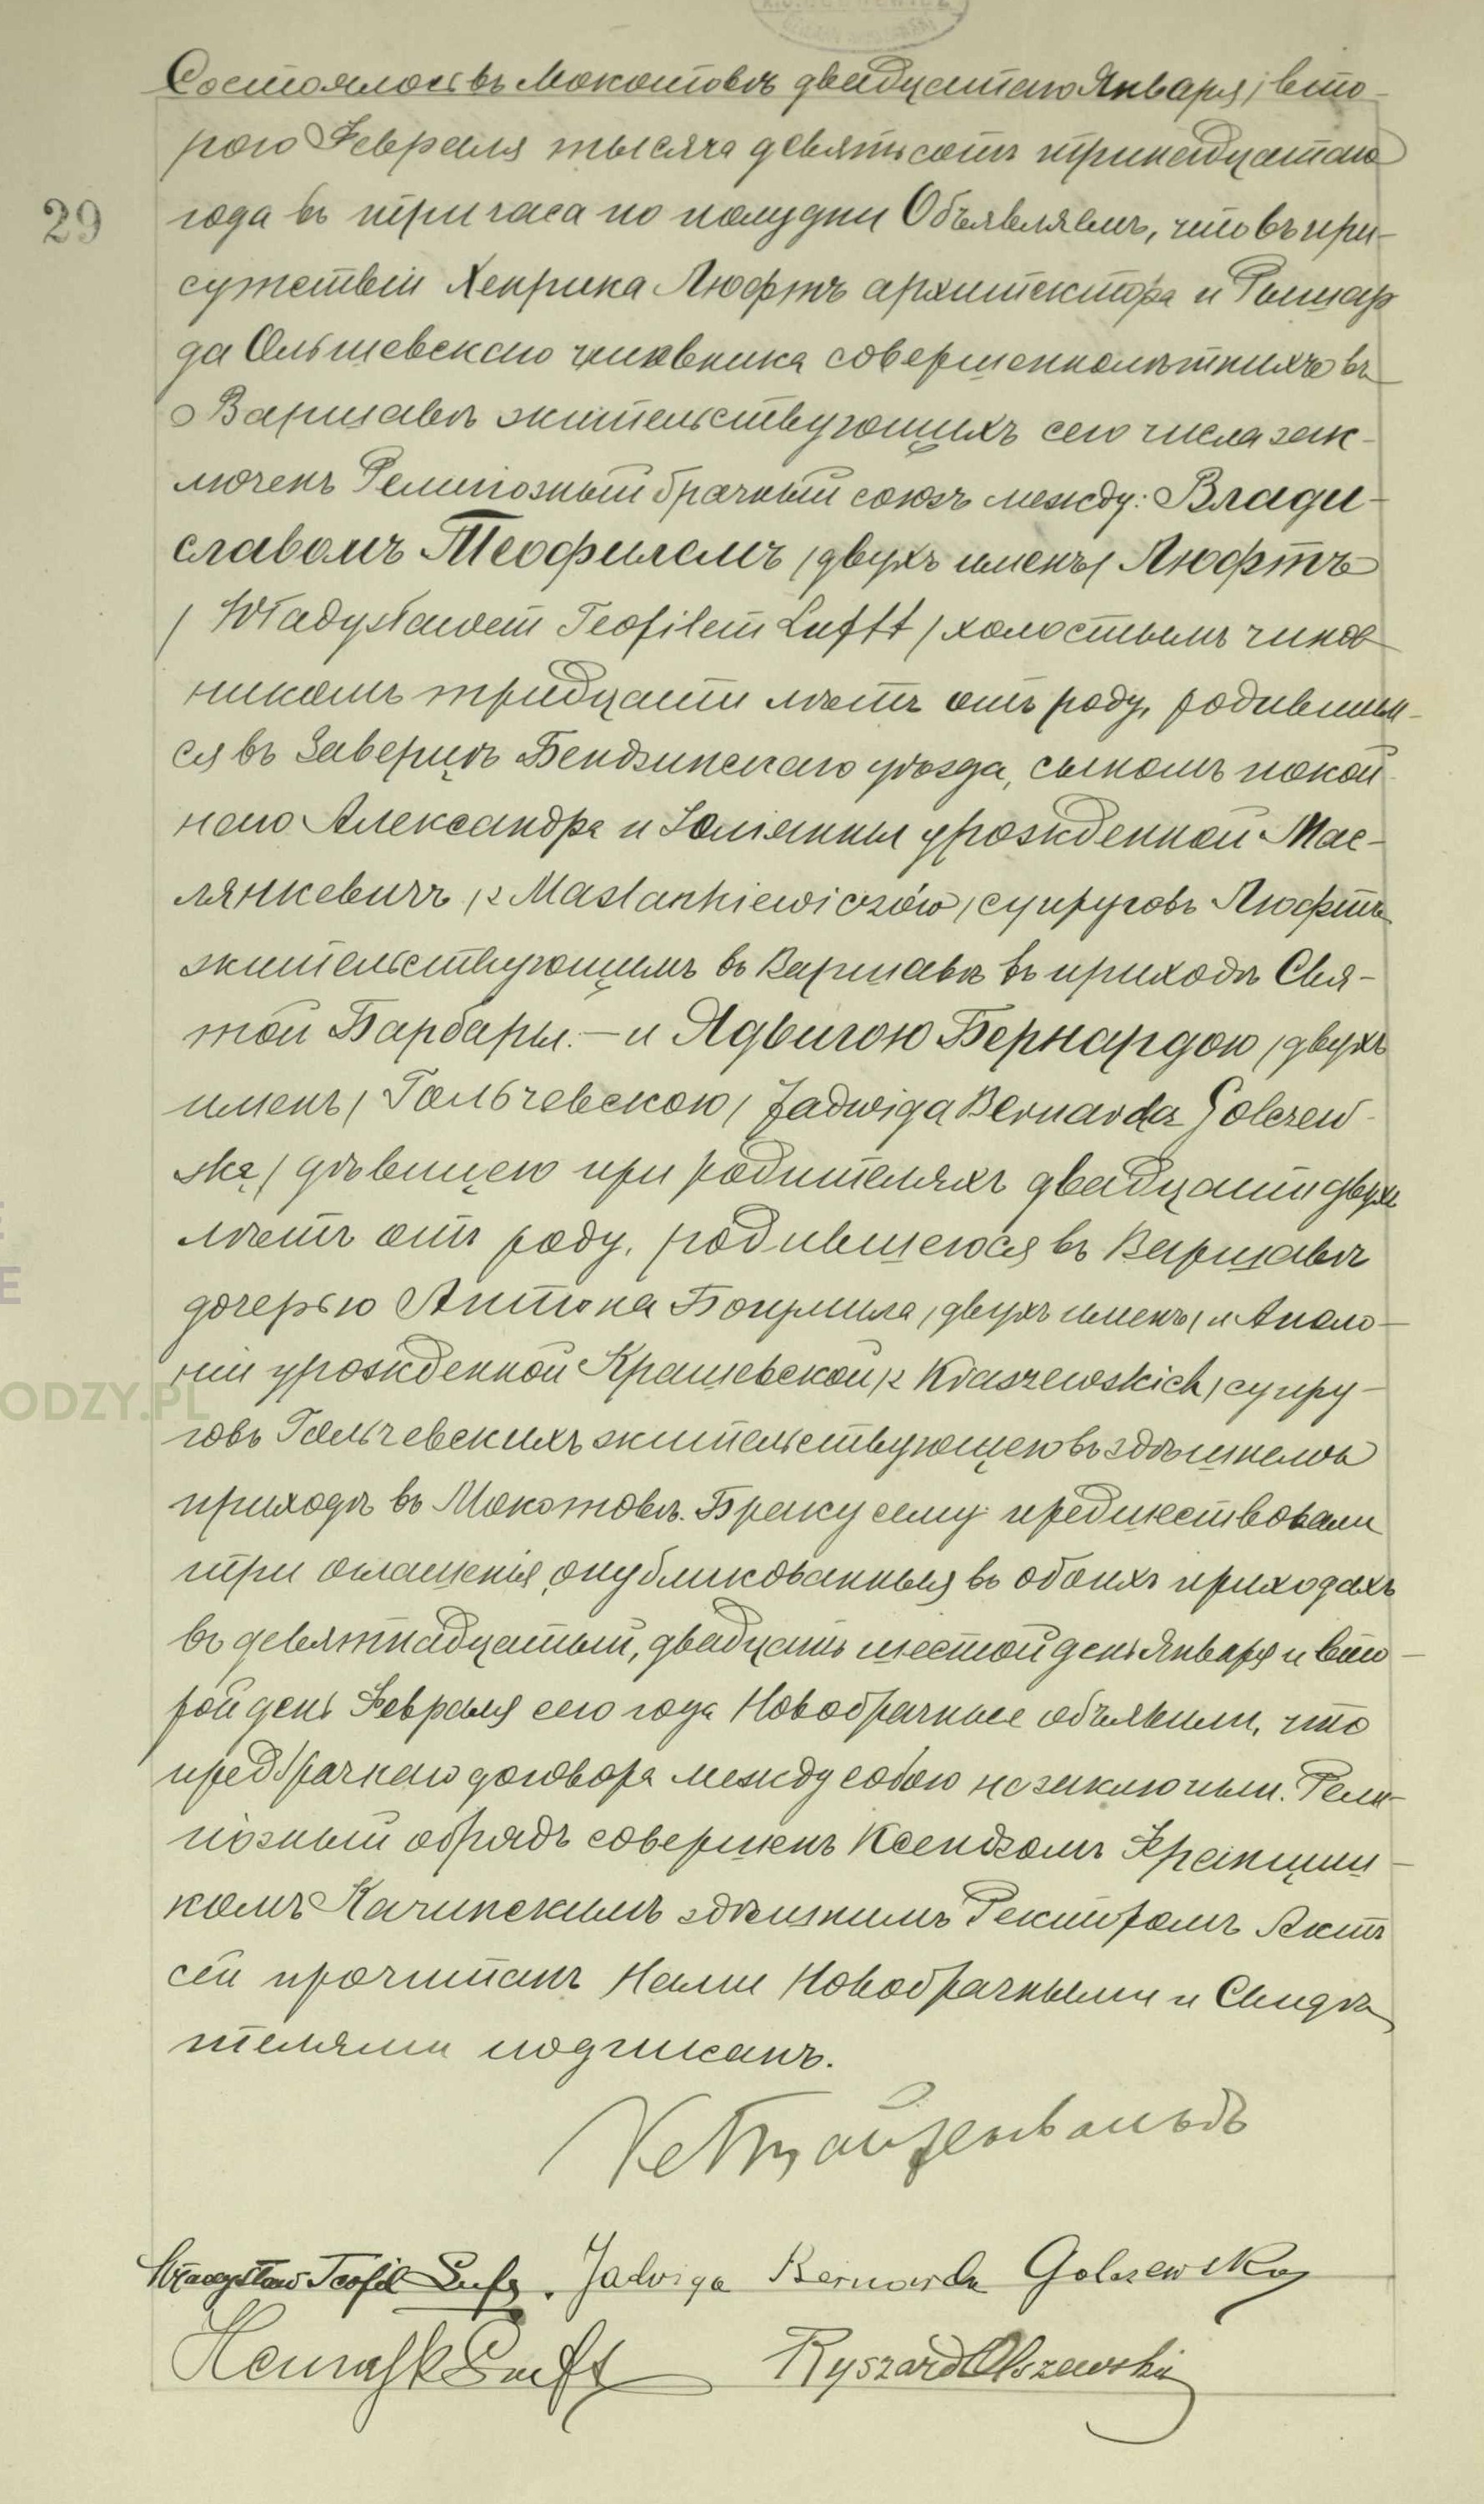 Состоялось въ Мокотовѣ двадцатаго Января / вто-
рого Февраля тысяча девятьсотъ тринадцатаго
29
года въ три часа по полудни Объявляемъ, что въ при-
сутствіи Хенрика Люфтъ архитектора и Рышар
да Ольшевскаго чиновника совершеннолѣтнихъ въ
Варшавѣ жительствующихъ сего числа зак-
люченъ Религіозный брачный союзъ между: Влади-
славомъ Теофилемъ /двухъ именъ/ Люфтъ
/ Władysławem Teofilem Lufft / холостымъ чинов
никомъ тридцати лѣтъ отъ роду, родившим-
ся въ Заверцѣ Бендзинскаго уѣзда, сыномъ покой
наго Александра и Юліанны урожденной Мас-
лянкевичъ /z Maslankiewiczów/ супруговъ Люфтъ
жительствующимъ въ Варшавѣ въ приходѣ Свя-
той Барбары. — и Ядвигою Бернардою /двухъ
именъ/ Гольчевскою / Jadwiga Bernarda Golczew-
ską / дѣвицею при родителяхъ двадцати двухъ
лѣтъ отъ роду, родившеюся въ Варшавѣ
дочерью Антона Богумила /двухъ именъ/ и Аполо-
ніи урожденной Крашевской /z Kraszewskich/ супру-
говъ Гольчевскихъ жительствующею въ здѣшнемъ
ODZY.PL
приходѣ въ Мокотовѣ. Браку сему предшествовали
три оглашенія, опубликованныя въ обоихъ приходахъ
въ девятнадцатый, двадцать шестой день Января и вто-
рой день Февраля сего года Новобрачные объявили, что
предбрачнаго договора между собою не заключили. Рели-
гіозный обрядъ совершенъ Ксендзомъ Францишк-
комъ Качинскимъ здѣшнимъ Ректоромъ Актъ
сей прочитанъ Нами Новобрачными и Свидѣ
телями подписанъ.
Władysław Teofil Lufft. Jadwiga Bernarda Golczewska
Henryk Lufft Ryszard Olszewski